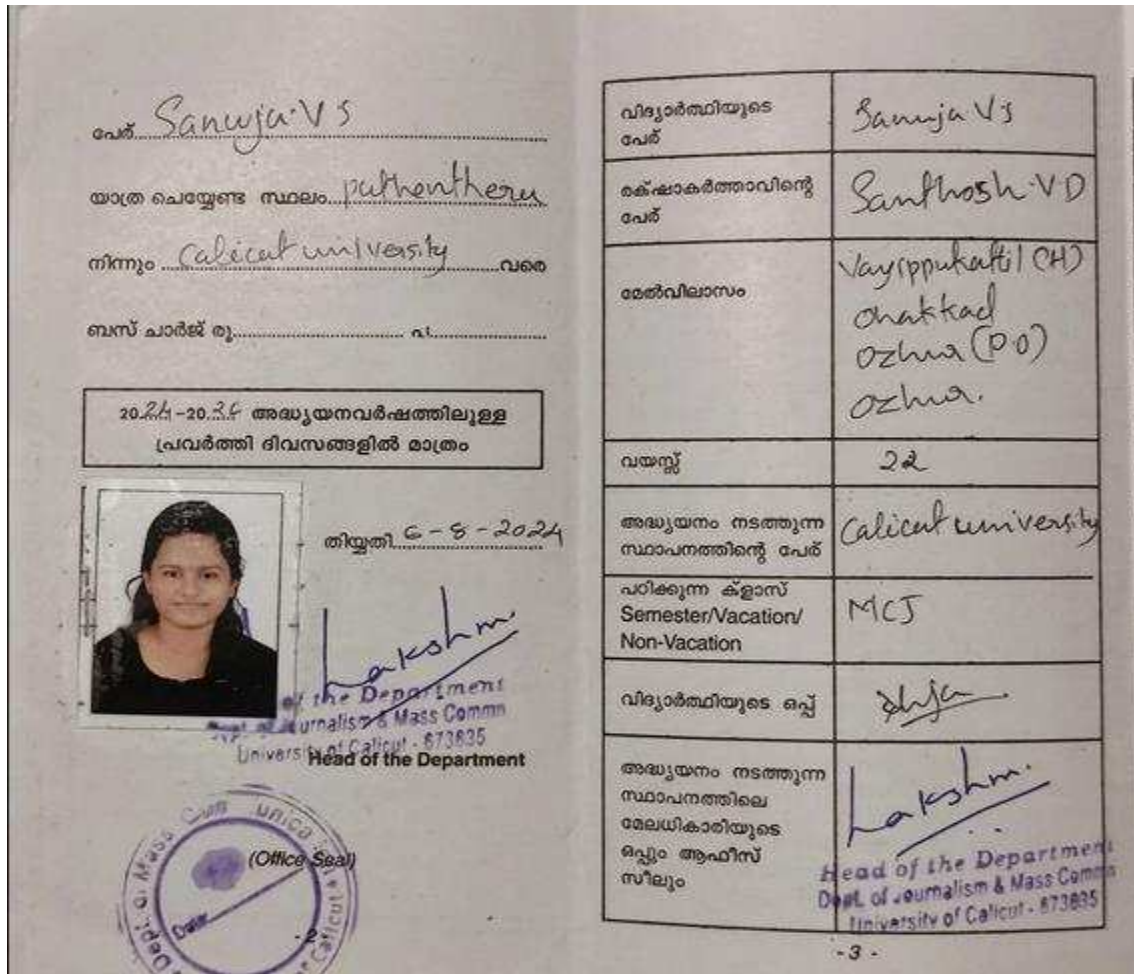 പേര് Sanuja.V S
യാത്ര ചെയ്യേണ്ട സ്ഥലം puthentheru
നിന്നും Calicut university വരെ
ബസ് ചാർജ് രൂ. പ.
2024-20 അദ്ധ്യയനവർഷത്തിലുള്ള
പ്രവർത്തി ദിവസങ്ങളിൽ മാത്രം
തിയ്യതി 6-8-2024
Lakshm.
of the Department
Dept. of Journalism & Mass Commn
University of Calicut - 673635
Head of the Department
(Office Seal)
Date
- 2
വിദ്യാർത്ഥിയുടെ
പേര്
Sanuja V S
രക്ഷാകർത്താവിന്റെ
പേര്
Santhosh.V D
മേൽവിലാസം
Vayippukattil (H)
onakkad
ozhur (P.O)
ozhur.
വയസ്സ്
22
അദ്ധ്യയനം നടത്തുന്ന
സ്ഥാപനത്തിന്റെ പേര്
Calicut university
പഠിക്കുന്ന ക്ളാസ്
Semester/Vacation/
Non-Vacation
MCJ
വിദ്യാർത്ഥിയുടെ ഒപ്പ്
അദ്ധ്യയനം നടത്തുന്ന
സ്ഥാപനത്തിലെ
മേലധികാരിയുടെ
ഒപ്പും ആഫീസ്
സീലും
Lakshm.
Head of the Department
Dept. of Journalism & Mass Commn
University of Calicut - 673635
- 3 -